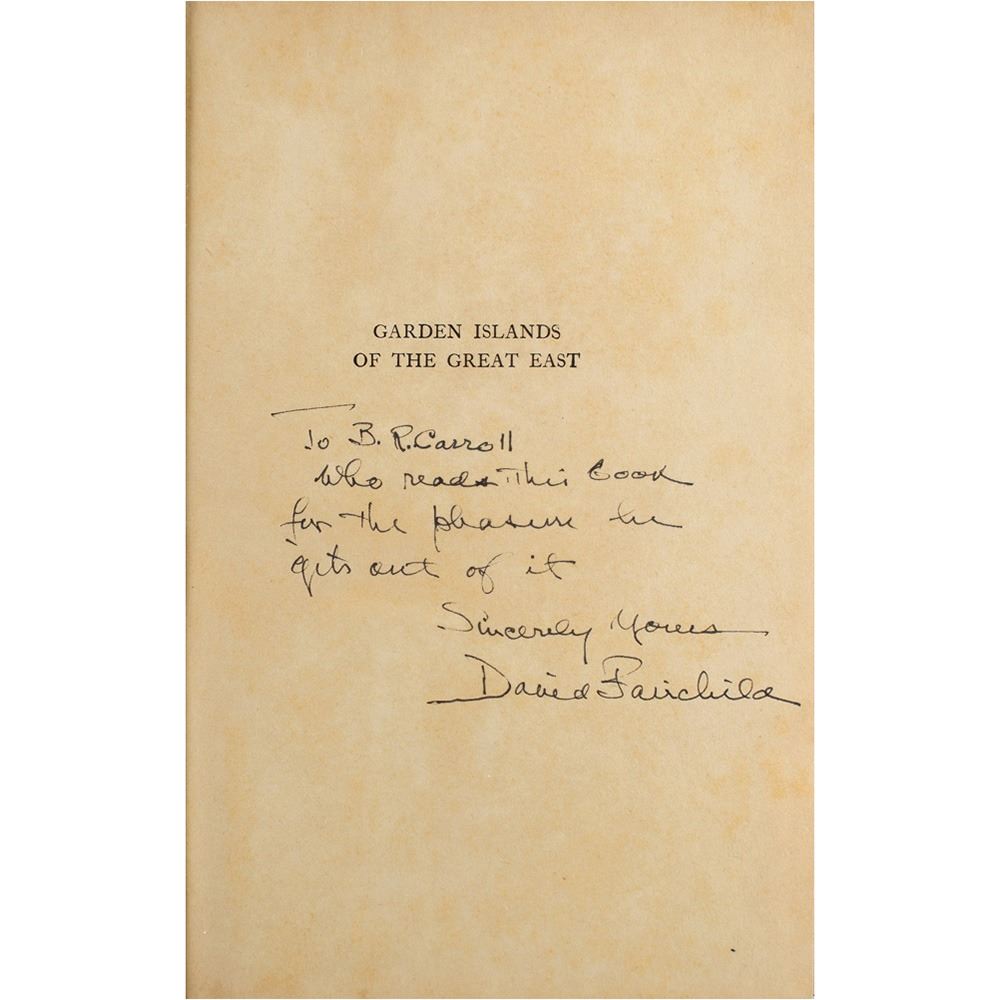 GARDEN ISLANDS
OF THE GREAT EAST
To B. R. Carroll
who reads this book
for the pleasure he
gets out of it
Sincerely Yours
David Fairchild